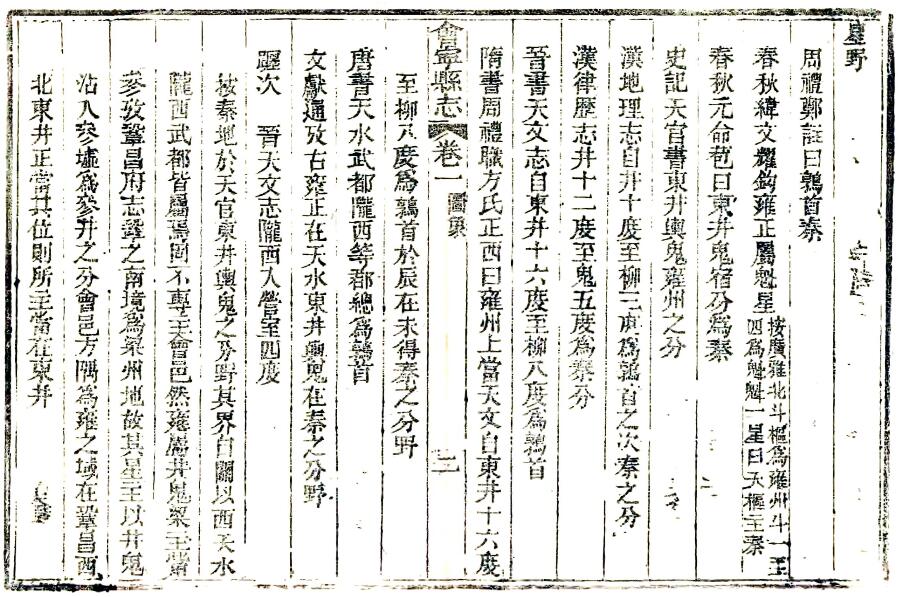 星野
周禮鄭註曰鶉首秦
春秋緯文耀鉤雍正屬魁星按廣雅北斗樞為雍州斗一至四為魁魁一星曰天樞主秦
春秋元命苞曰東井鬼宿分為秦
史記天官書東井輿鬼雍州之分
漢地理志自井十度至柳三度為鶉首之次秦之分
漢律歷志井十二度至鬼五度為秦分
晉書天文志自東井十六度至柳八度為鶉首
隋書周禮職方氏正西曰雍州上當天文自東井十六度
會寧縣志 卷一 圖象 二
至柳八度為鶉首於辰在未得秦之分野
唐書天水武都隴西等郡總為鶉首
文獻通攷古雍正在天水東井輿鬼在秦之分野
躔次 晉天文志隴西入營室四度
按秦地於天官東井輿鬼之分野其界自關以西天水
隴西武都皆屬焉固不專主會邑然雍屬井鬼梁主觜
參攷鞏昌府志鞏之南境為梁州地故其星主以井鬼
沾入參墟為參井之分會邑方隅為雍之域在鞏昌西
北東井正當其位則所主當在東井